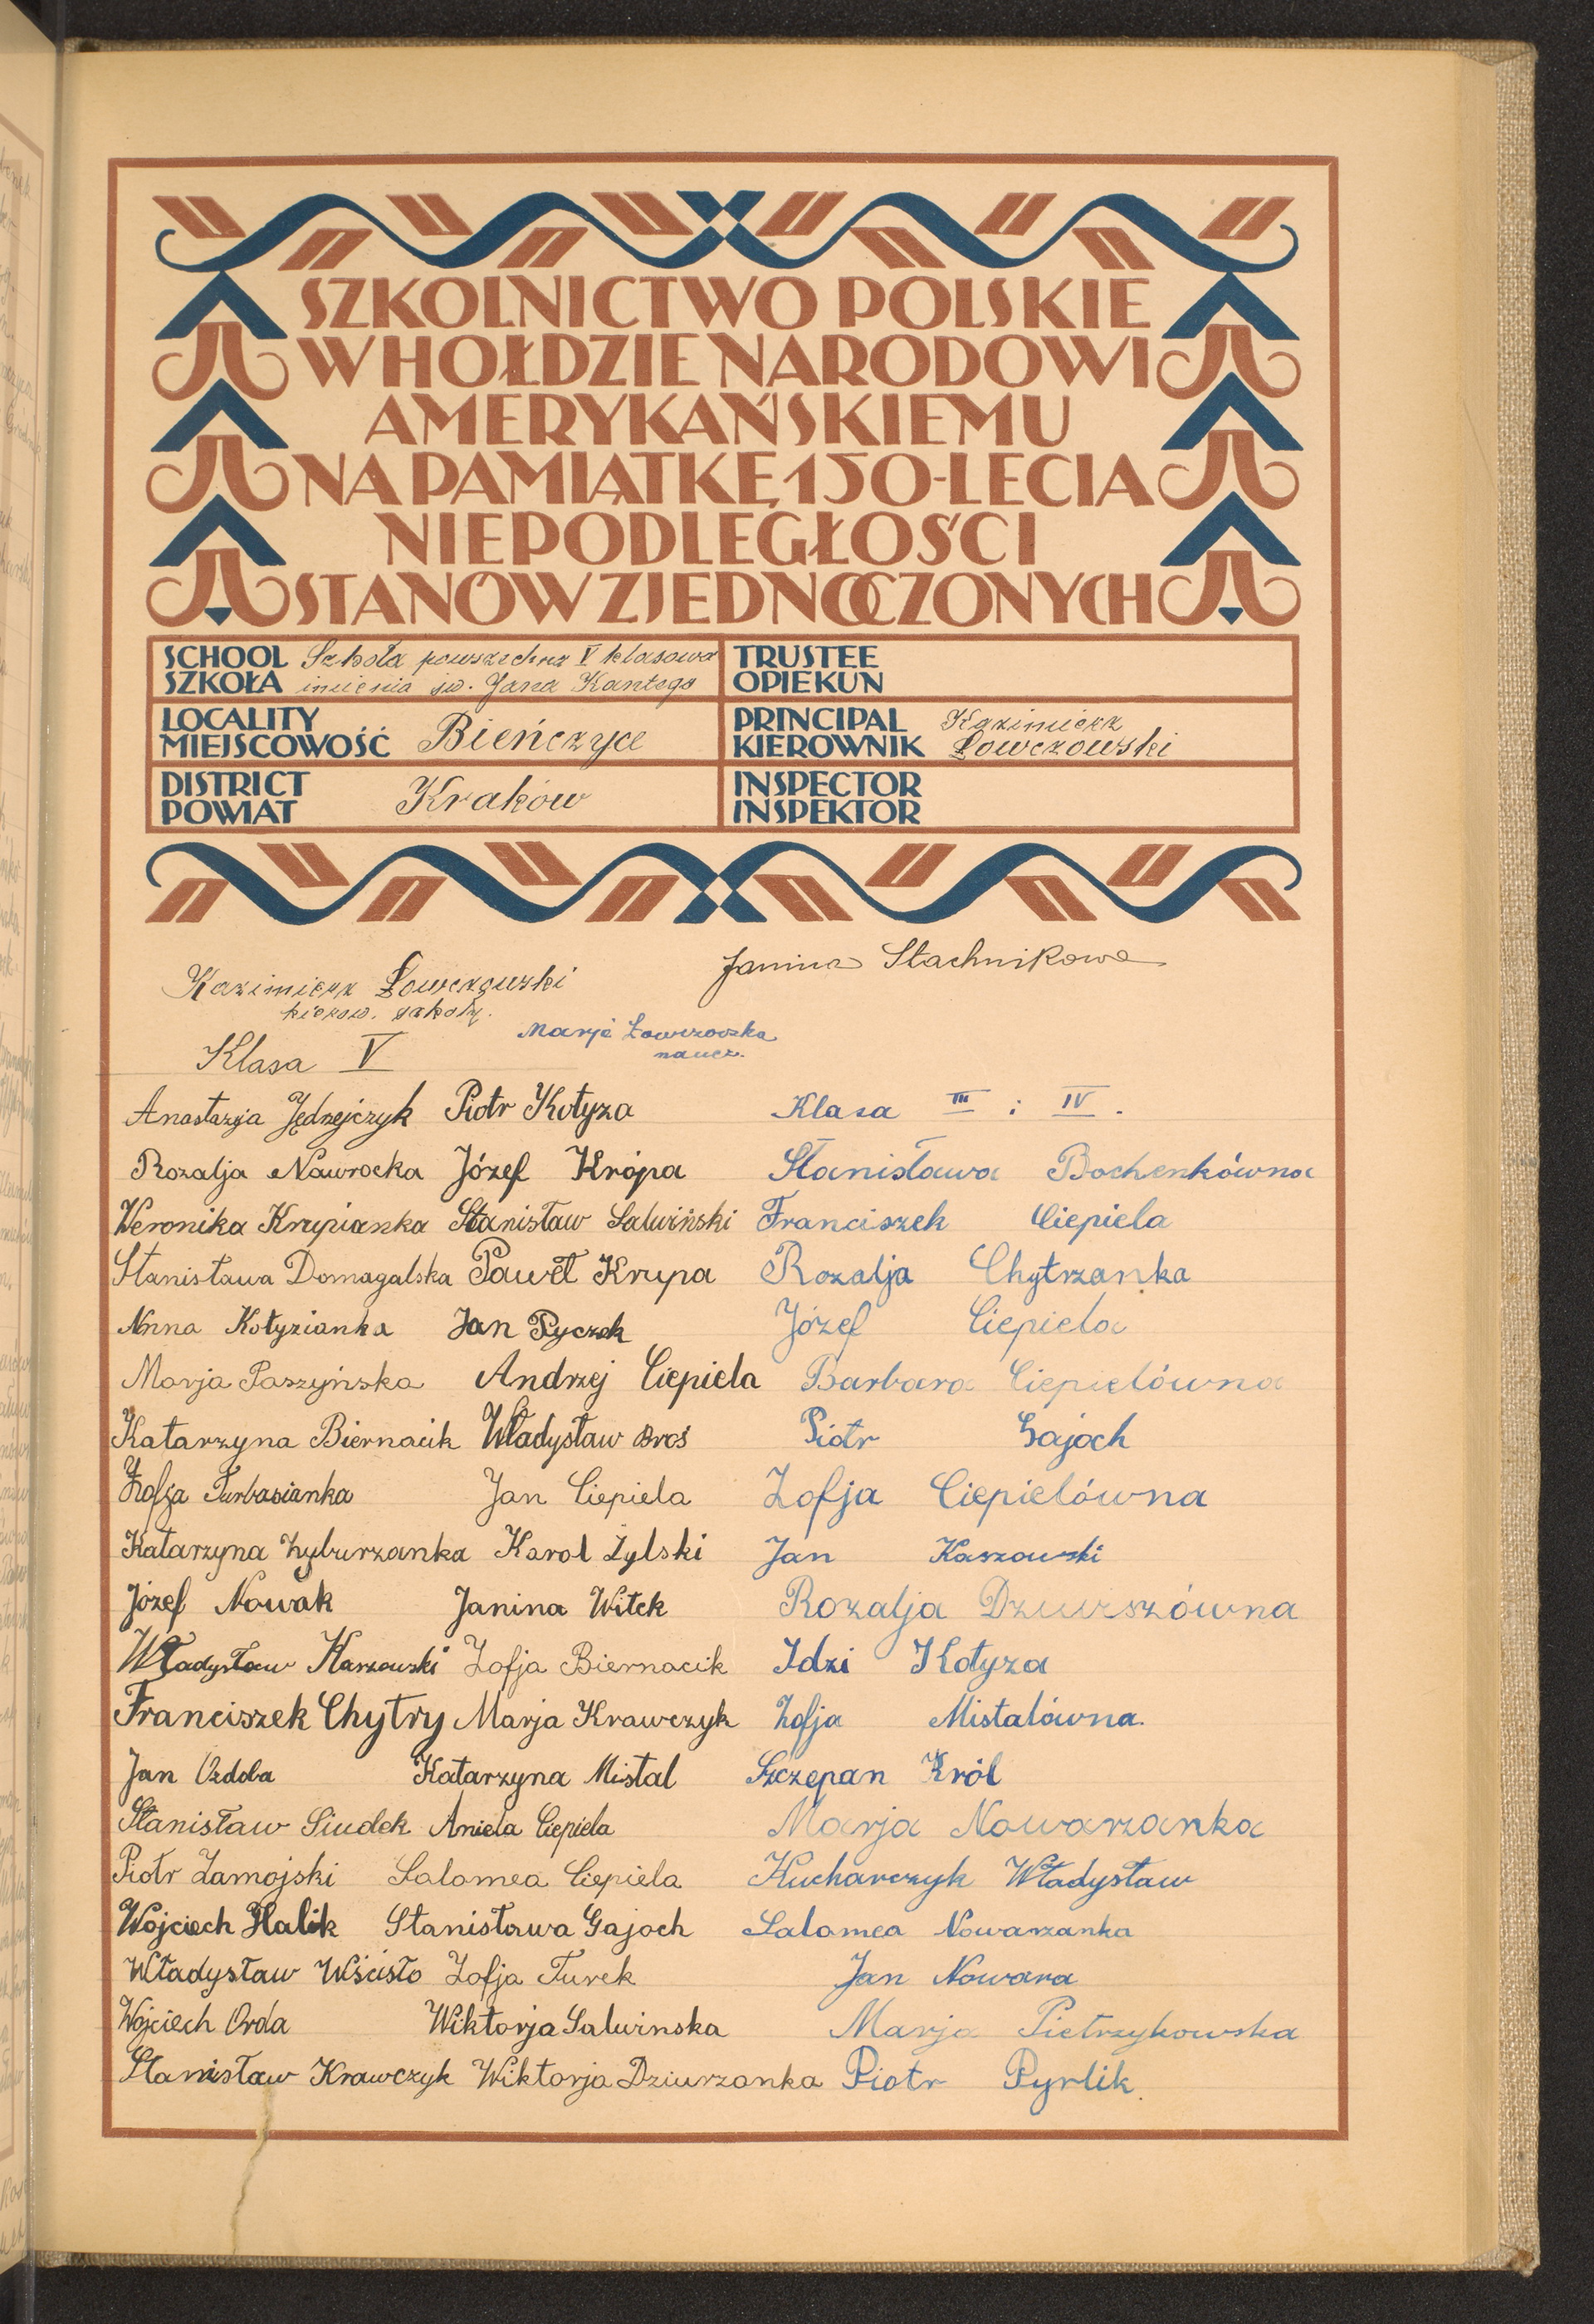 SZKOLNICTWO POLSKIE
W HOŁDZIE NARODOWI
AMERYKAŃSKIEMU
NA PAMIĄTKĘ 150-LECIA
NIEPODLEGŁOŚCI
STANÓW ZJEDNOCZONYCH
SCHOOL
SZKOŁA
Szkoła powszechna V klasowa
imienia św. Jana Kantego
TRUSTEE
OPIEKUN
LOCALITY
MIEJSCOWOŚĆ
Bieńczyce
PRINCIPAL
KIEROWNIK
Kazimierz
Łowczowski
DISTRICT
POWIAT
Kraków
INSPECTOR
INSPEKTOR
Kazimierz Łowczowski
kierow. szkoły.
Janina Stachnikowa
Marja Łowczowska
naucz.
Klasa V
Anastazja Jędrzejczyk
Rozalja Nawrocka
Weronika Krupianka
Stanisława Domagalska
Anna Kotyzianka
Marja Paszyńska
Katarzyna Biernacik
Zofja Turbasianka
Katarzyna Zyburzanka
Józef Nowak
Władysław Karzowski
Franciszek Chytry
Jan Ozdoba
Stanisław Siudek
Piotr Zamojski
Wojciech Halik
Władysław Wścisło
Wojciech Orda
Stanisław Krawczyk
Piotr Kotyza
Józef Krópa
Stanisław Salwiński
Paweł Krupa
Jan Pyczek
Andrzej Ciepiela
Władysław Broś
Jan Ciepiela
Karol Żylski
Janina Witek
Zofja Biernacik
Marja Krawczyk
Katarzyna Mistal
Aniela Ciepiela
Salomea Ciepiela
Stanisława Gajoch
Zofja Turek
Wiktorja Salwinska
Wiktorja Dziurzanka
Klasa III i IV.
Stanisława Bochenkówna
Franciszek Ciepiela
Rozalja Chytrzanka
Józef Ciepiela
Barbara Ciepielówna
Piotr Gajoch
Zofja Ciepielówna
Jan Kaszowski
Rozalja Dziurszówna
Idzi Kotyza
Zofja Mistalówna.
Szczepan Król
Marja Nowarzanka
Kucharczyk Władysław
Salomea Nowarzanka
Jan Nowara
Marja Pietrzykowska
Piotr Pyrlik.